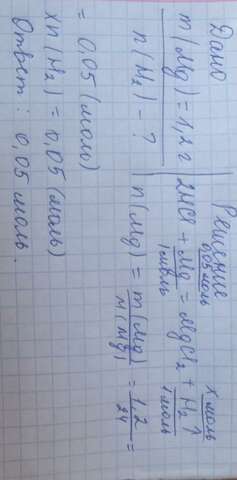 Дано
m(Mg) = 1,2 г
n(H₂) - ?
Решение
0,05 моль x моль
2HCl + Mg = MgCl₂ + H₂ ↑
1 моль 1 моль
n(Mg) = m(Mg) / M(Mg) = 1,2 / 24 =
= 0,05 (моль)
xn(H₂) = 0,05 (моль)
Ответ: 0,05 моль.